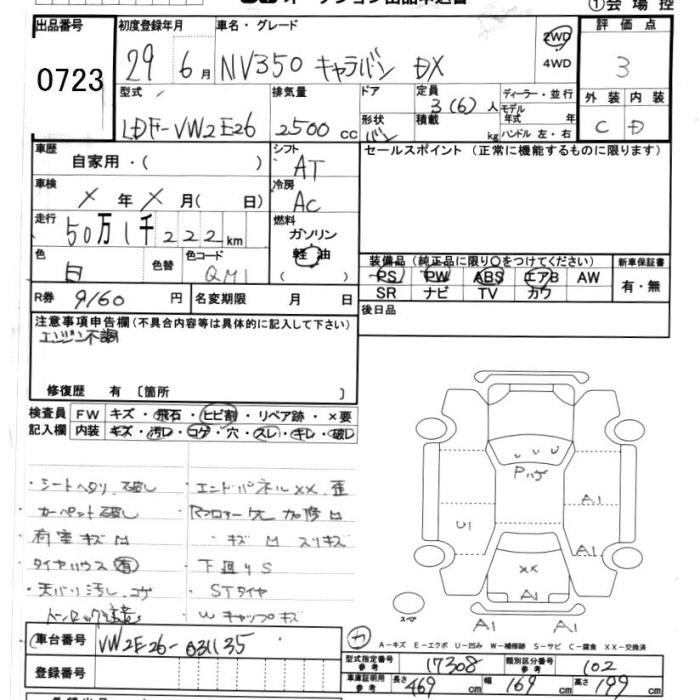 オークション出品申込書
①会場控
出品番号
0723
初度登録年月
29 6月
車名・グレード
NV350 キャラバン DX
2WD
4WD
評価点
3
型式
LDF-VW2E26
排気量
2500 cc
ドア
形状
バン
定員
3(6)人
積載
kg
ディーラー・並行
モデル
年式 年
ハンドル 左・右
外装 内装
C D
車歴
自家用・( )
シフト
AT
セールスポイント (正常に機能するものに限ります)
車検
X 年 X 月( 日)
冷房
AC
走行
50万1千222km
燃料
ガソリン
軽油
( )
色
白
色替
色コード
QM1
装備品 (純正品に限り○をつけてください)
新車保証書
PS PW ABS エアB AW
SR ナビ TV カワ
有・無
R券 9160 円
名変期限 月 日
後日品
注意事項申告欄 (不具合内容等は具体的に記入して下さい)
エンジン不調
修復歴 有 〔箇所 〕
検査員
記入欄
FW キズ・飛石・ヒビ割・リペア跡・×要
内装 キズ・汚レ・コゲ・穴・スレ・キレ・破レ
・シートヘタリ、破レ
・カーペット破レ
・荷室キズM
・タイヤハウス 有
・天バリ汚レ、コゲ
・エンドパネルXX、歪
・キズM スリキズ
・下回りS
・STタイヤ
・Wキャップキズ
Pハゲ
U1
A1
A1
XX
A1
A1
A1
スペア
車台番号
VW2E26-031135
登録番号
A-キズ E-エクボ U-凹み W-補修跡 S-サビ C-腐食 XX-交換済
型式指定番号
参考
17308
類別区分番号
参考
102
車庫証明用
参考
長さ 469cm 幅 169cm 高さ 199cm